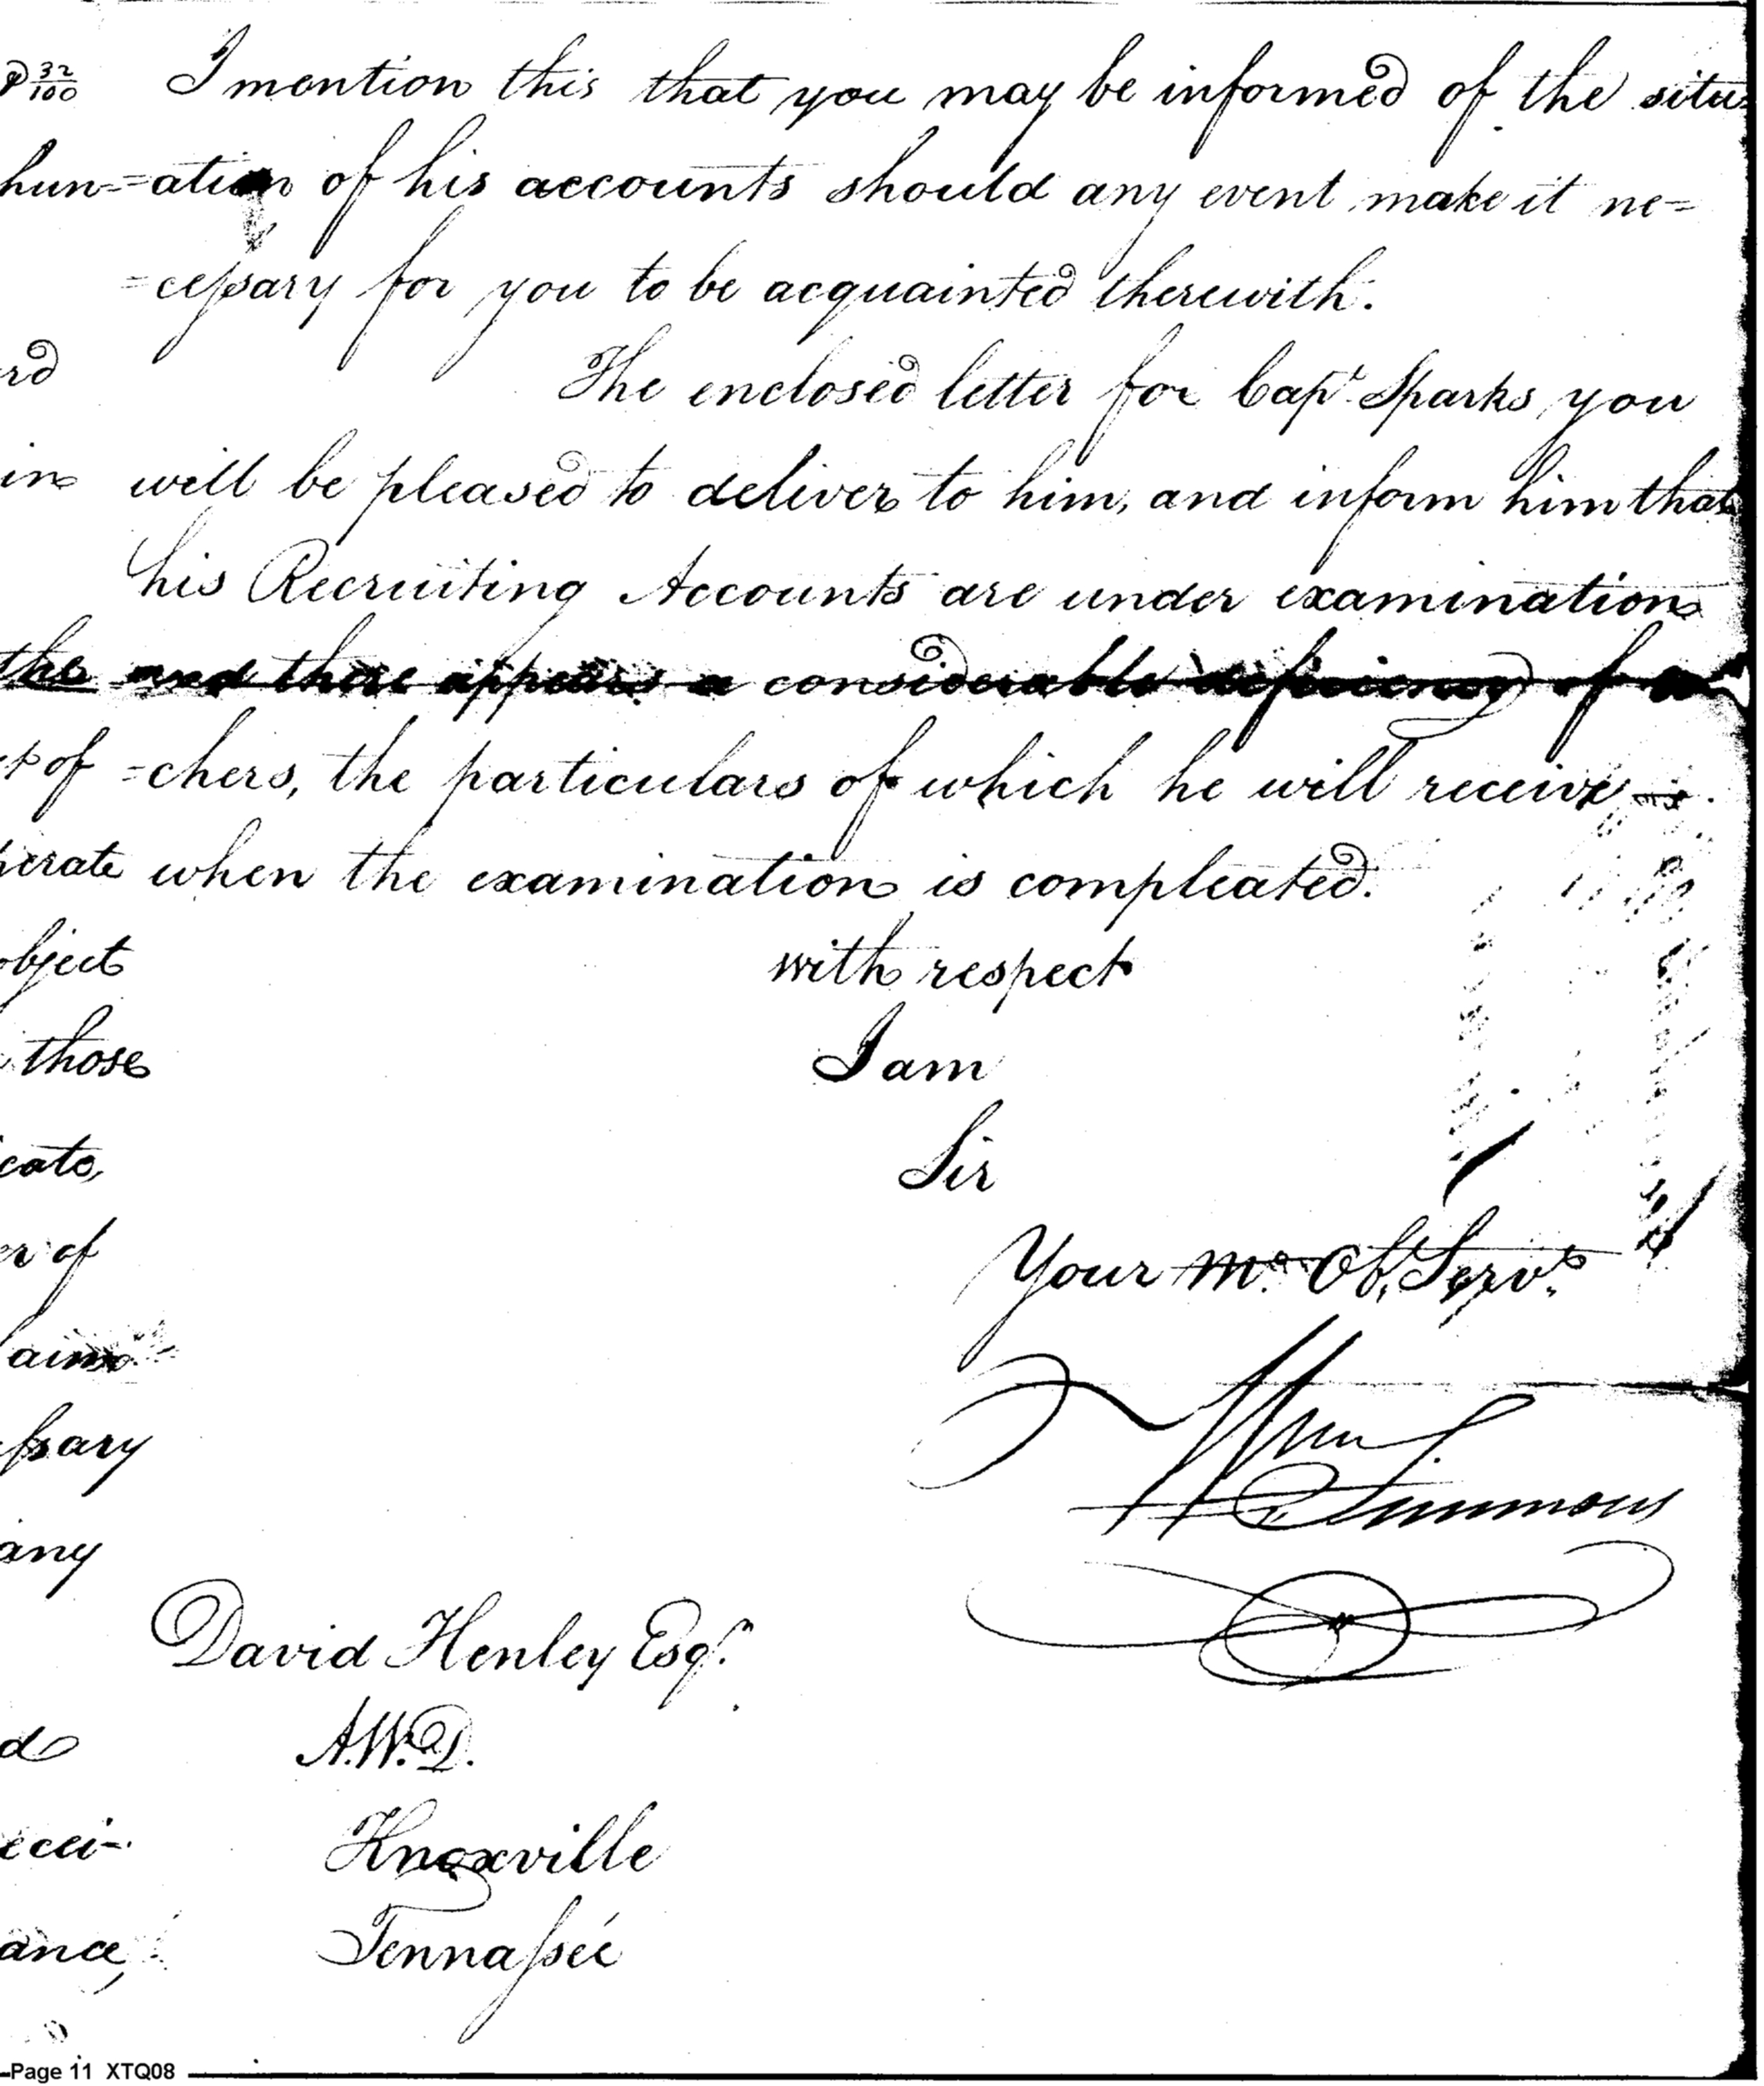 D 32/100 I mention this that you may be informed of the situ=
hun= =ation of his accounts should any event make it ne=
=cessary for you to be acquainted therewith.
rd The enclosed letter for Capt. Sparks you
in will be pleased to deliver to him, and inform him that
his Recruiting Accounts are under examination
the and there appears a considerable deficiency of
t of =chers, the particulars of which he will receive
perate when the examination is compleated.
object with respect
those I am
cate, Sir
er of Your mo. Ob. Servt.
aims
Wm. Simmons
ssary
any
David Henley Esqr.
d A.W.D.
ecei- Knoxville
ance, Tennassee
Page 11 XTQ08